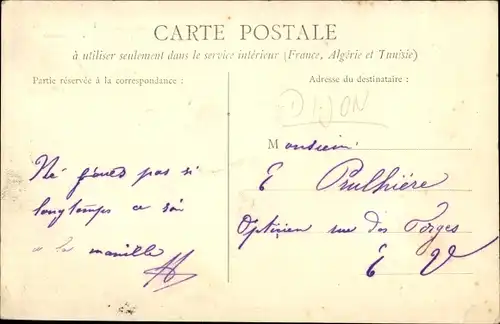 CARTE POSTALE
à utiliser seulement dans le service intérieur (France, Algérie et Tunisie)
Partie réservée à la correspondance :
Adresse du destinataire :
DIJON
Monsieur
Né jouez pas si
E Prulhière
longtemps ce soir
Opticien rue des Forges
a la manille
E V